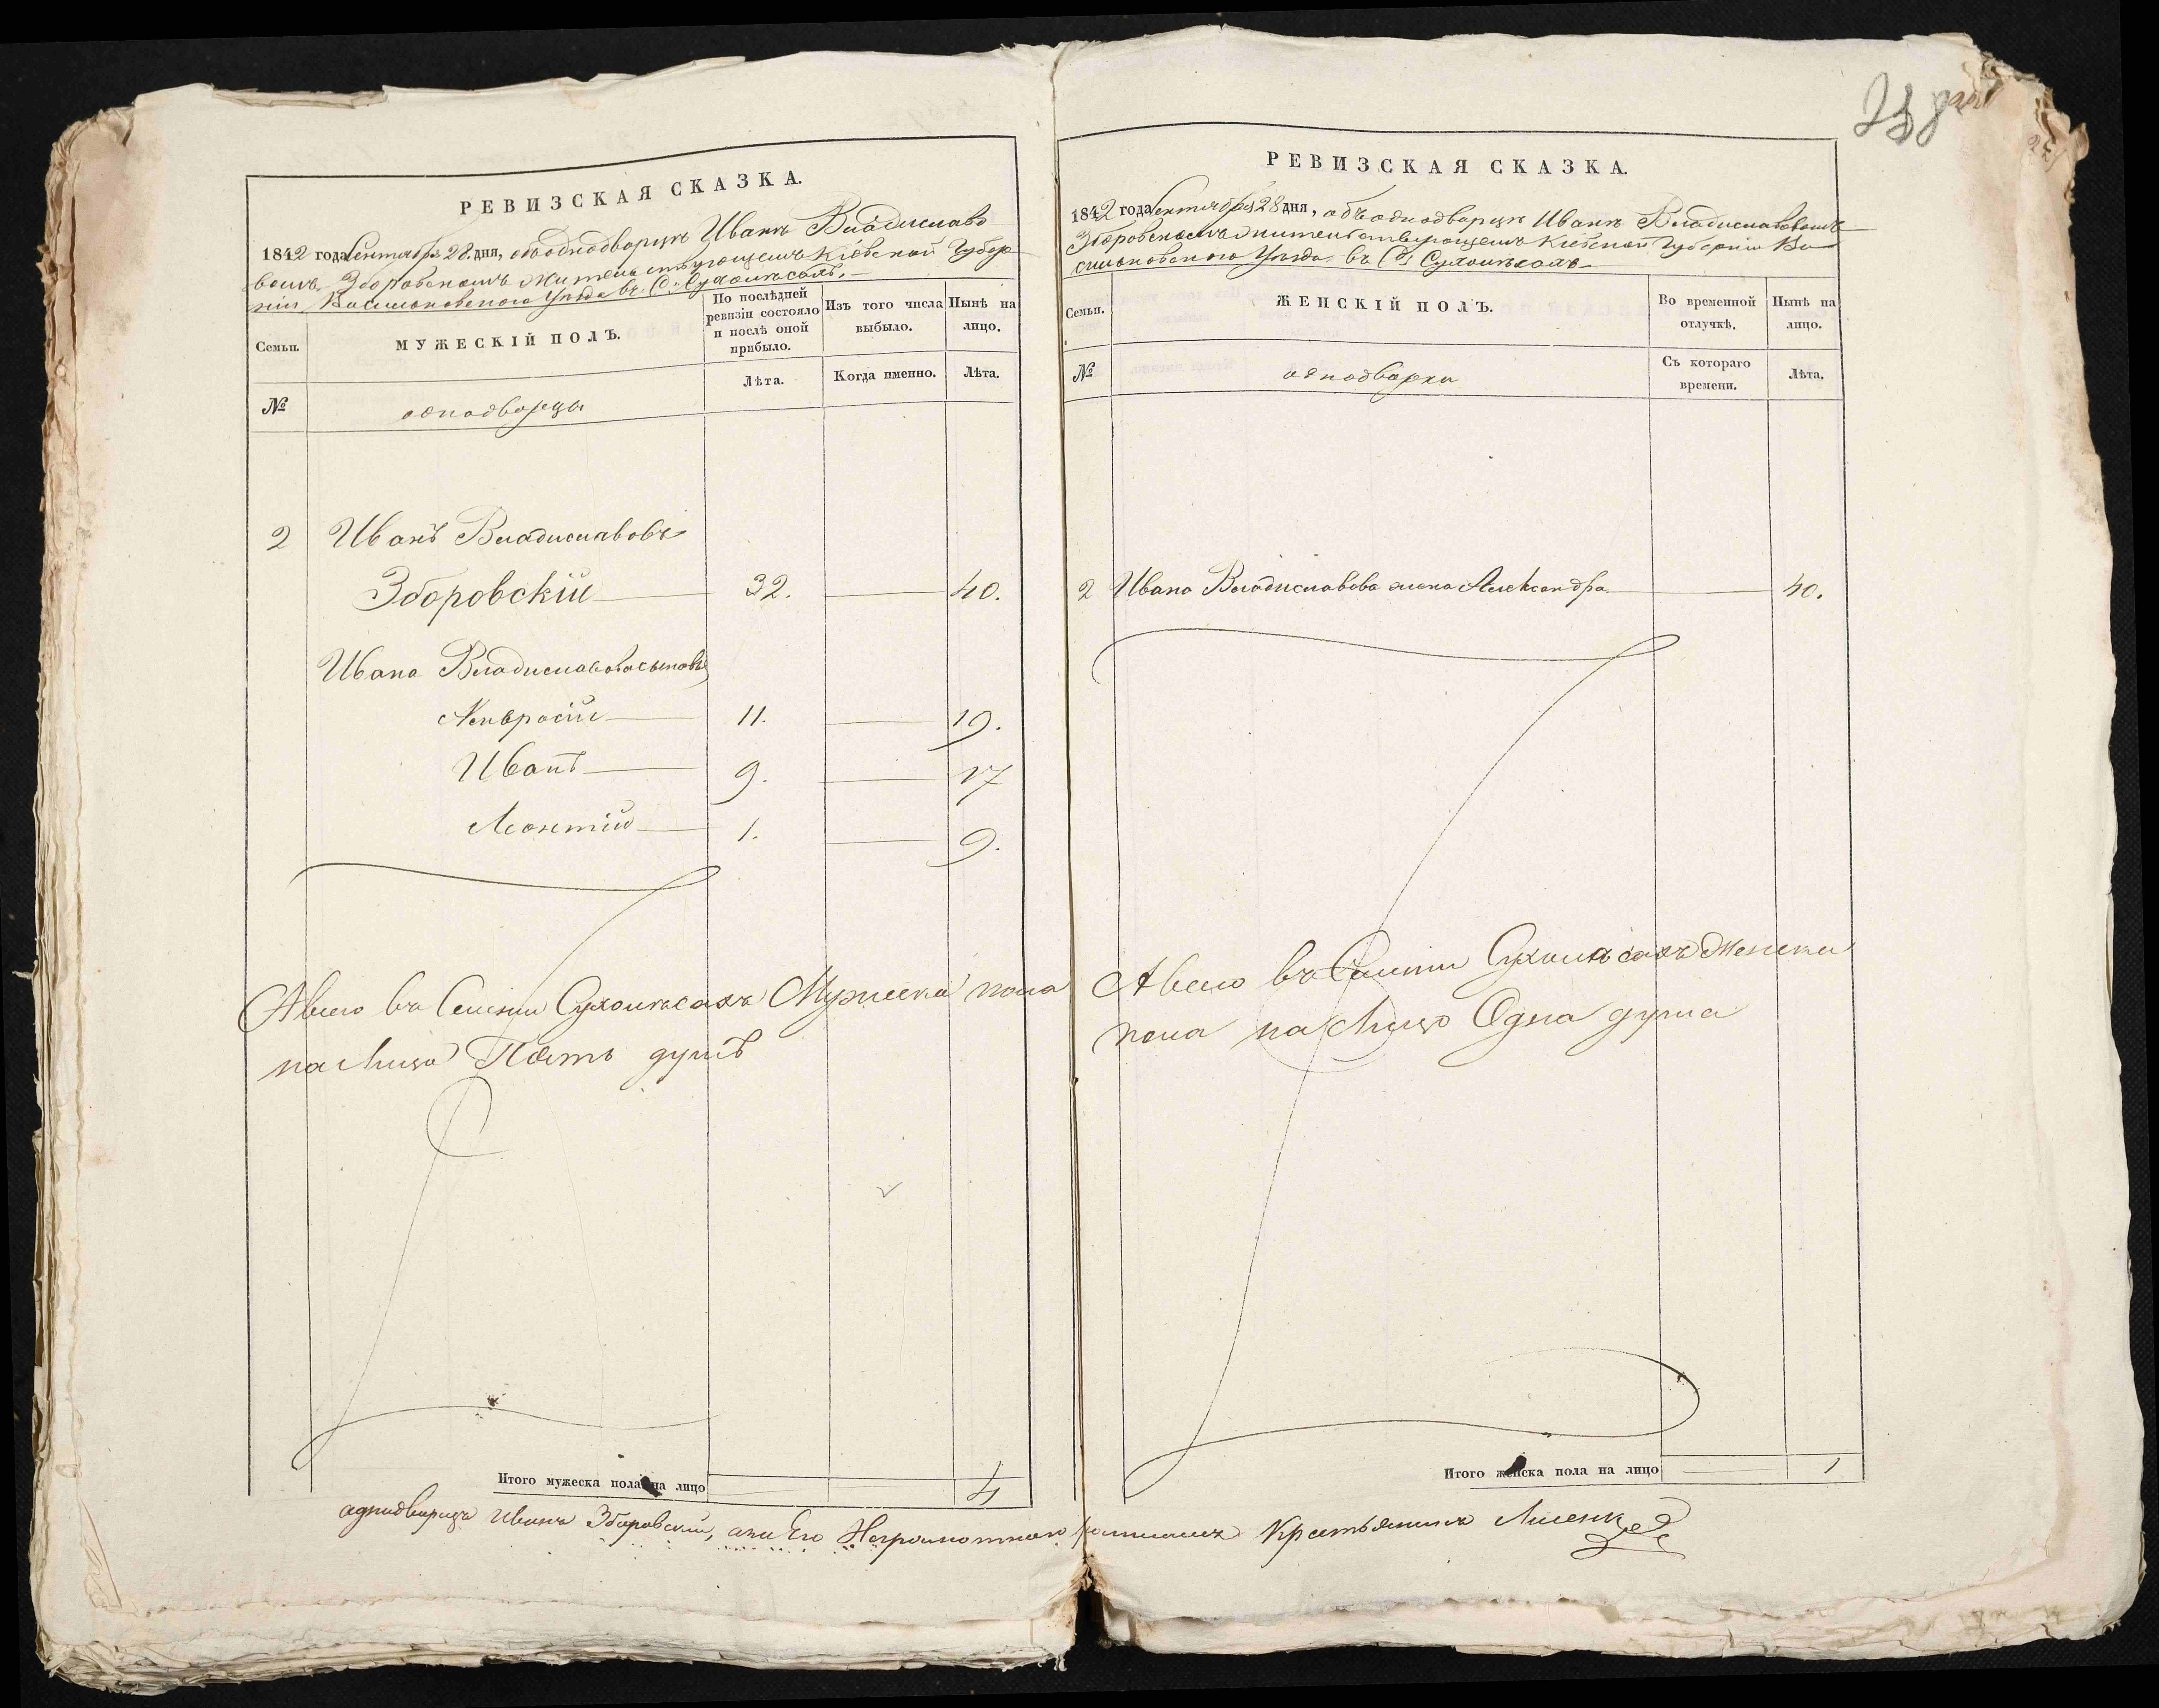 РЕВИЗСКАЯ СКАЗКА.
1842 года Сентября 28 дня, объ однодворцѣ Иванѣ Владиславо
вомъ Зборовскомъ жительствующемъ Кіевской Губер
ніи Васильковскаго Уѣзда въ С. Сухолѣсахъ.
Семьи.
МУЖЕСКІЙ ПОЛЪ.
По послѣдней
ревизіи состояло
и послѣ оной
прибыло.
Изъ того числа
выбыло.
Нынѣ на
лицо.
№
однодворцы
Лѣта.
Когда именно.
Лѣта.
2 Иванъ Владиславовъ
Зборовскій 32. 40.
Ивана Владиславова сыновья
Амвросій 11. 19.
Иванъ 9. 17
Леонтій 1. 9.
А всего въ Селеніи Сухолѣсахъ Мужеска пола
на лицо Пять душъ
Итого мужеска пола на лицо 4
однодворца Иванъ Зборовскій, а за Его Неграмотнаго
238
РЕВИЗСКАЯ СКАЗКА.
1842 года Сентября 28 дня, объ однодворцѣ Иванѣ Владиславовомъ
Зборовскомъ жительствующемъ Кіевской Губерніи Ва
сильковскаго Уѣзда въ С. Сухолѣсахъ
Семьи.
ЖЕНСКІЙ ПОЛЪ.
Во временной
отлучкѣ.
Нынѣ на
лицо.
№
однодворки
Съ котораго
времени.
Лѣта.
2 Ивана Владиславова жена Александра 40.
А всего въ Селеніи Сухолѣсахъ Женска
пола на лицо Одна душа
Итого женска пола на лицо 1
Крестьянинъ